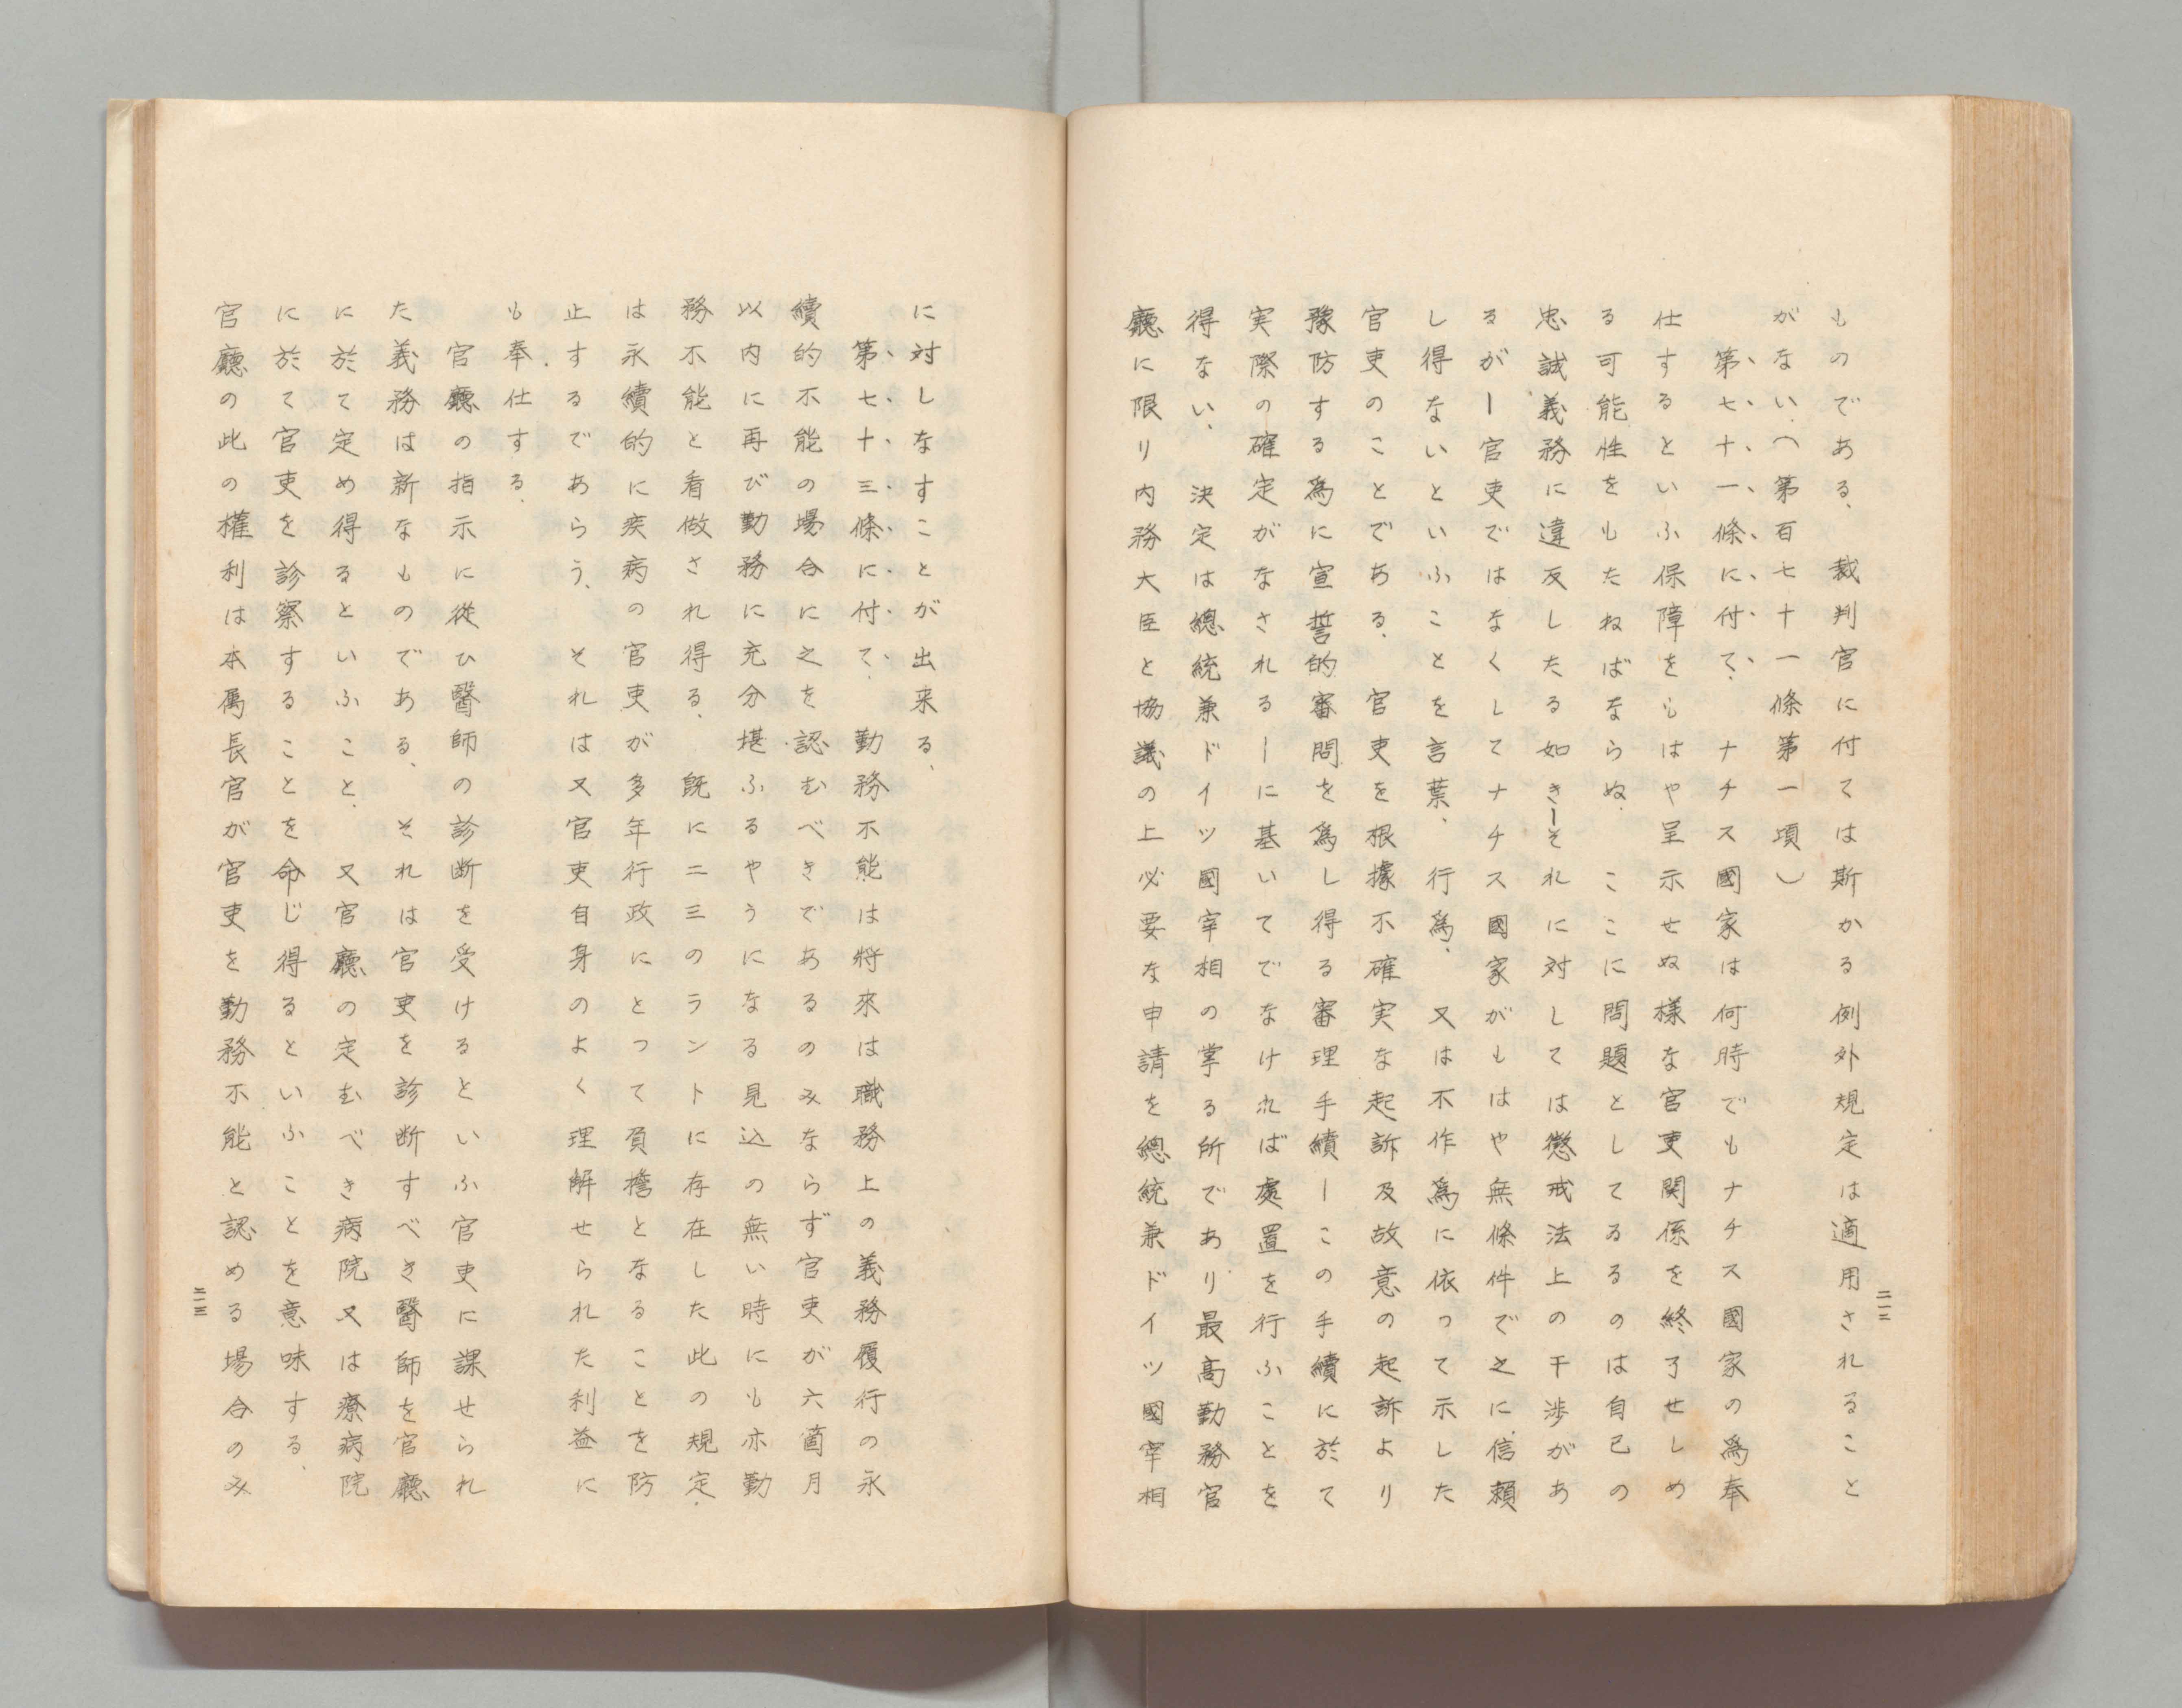 ものである、裁判官に付ては斯かる例外規定は適用されること
がない、（第百七十一條第一項）
第七十一條に付て、ナチス國家は何時でもナチス國家の爲奉
仕するといふ保障をもはや呈示せぬ様な官吏関係を終了せしめ
る可能性をもたねばならぬ、ここに問題としてるるのは自己の
忠誠義務に違反したる如きーそれに対しては懲戒法上の干渉があ
るがー官吏ではなくしてナチス國家がもはや無條件で之に信頼
し得ないといふことを言葉、行爲、又は不作爲に依って示した
官吏のことである、官吏を根據不確実な起訴及故意の起訴より
豫防する爲に宣誓的審問を爲し得る審理手續ーこの手續に於て
実際の確定がなされるーに基いてでなければ處置を行ふことを
得ない、決定は總統兼ドイツ國宰相の掌る所であり最高勤務官
廳に限り内務大臣と協議の上必要な申請を總統兼ドイツ國宰相
二一二
に対しなすことが出来る、
第七十三條に付て、勤務不能は将來は職務上の義務履行の永
續的不能の場合に之を認むべきであるのみならず官吏が六箇月
以内に再び勤務に充分堪ふるやうになる見込の無い時にも亦勤
務不能と看做され得る、既に二三のラントに存在した此の規定
は永續的に疾病の官吏が多年行政にとって負擔となることを防
止するであらう、それは又官吏自身のよく理解せられた利益に
も奉仕する、
官廳の指示に從ひ醫師の診断を受けるといふ官吏に課せられ
た義務は新なものである、それは官吏を診断すべき醫師を官廳
に於て定め得るといふこと、又官廳の定むべき病院又は療病院
に於て官吏を診察することを命じ得るといふことを意味する、
官廳の此の權利は本属長官が官吏を勤務不能と認める場合のみ
二一三